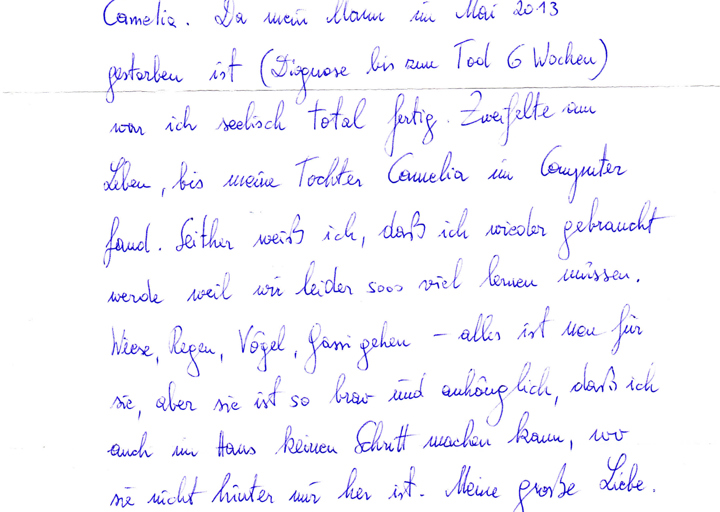 Camelia. Da mein Mann im Mai 2013
gestorben ist (Diagnose bis zum Tod 6 Wochen)
war ich seelisch total fertig. Zweifelte am
Leben, bis meine Tochter Camelia im Computer
fand. Seither weiß ich, daß ich wieder gebraucht
werde weil wir leider sooo viel lernen müssen.
Wiese, Regen, Vögel, Gassi gehen – alles ist neu für
sie, aber sie ist so brav und anhänglich, daß ich
auch im Haus keinen Schritt machen kann, wo
sie nicht hinter mir her ist. Meine große Liebe.